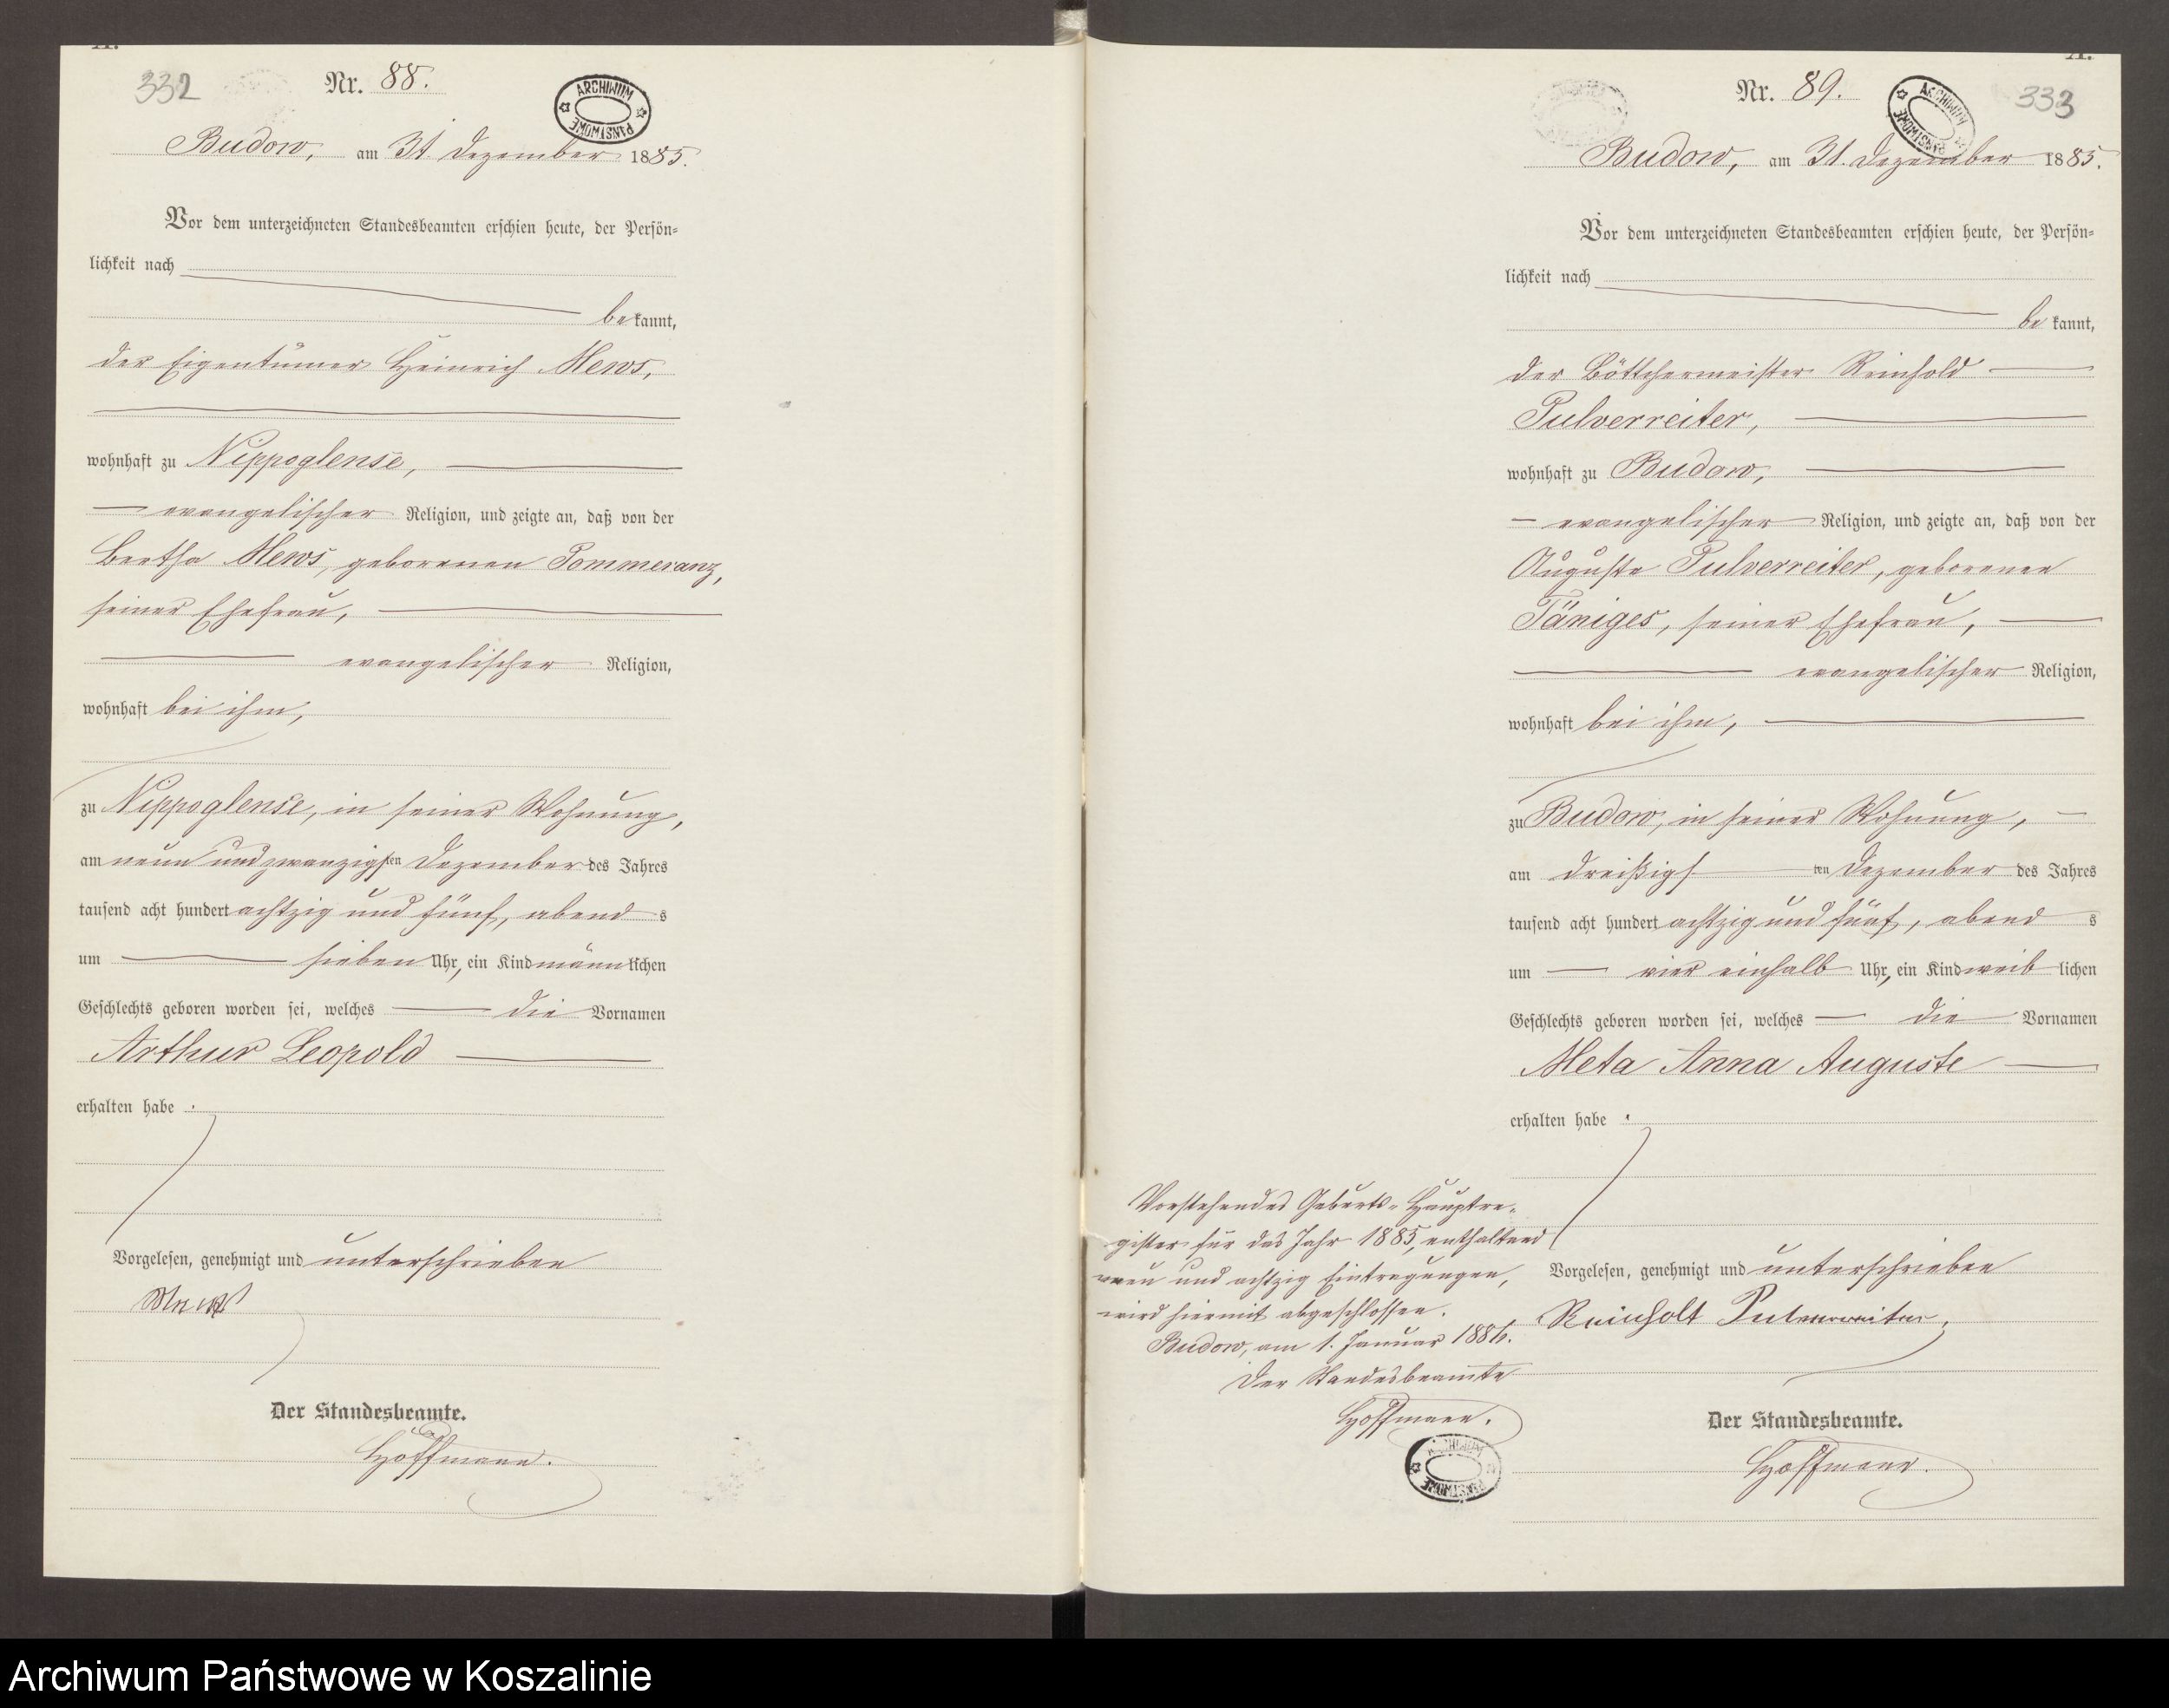 A.
332
Nr. 88.
ARCHIWUM PAŃSTWOWE
Budow, am 31. Dezember 1885.
Vor dem unterzeichneten Standesbeamten erschien heute, der Persön-
lichkeit nach
bekannt,
der Eigentümer Heinrich Mews,
wohnhaft zu Nippoglense,
evangelischer Religion, und zeigte an, daß von der
Bertha Mews, geborenen Pommeranz,
seiner Ehefrau,
evangelischer Religion,
wohnhaft bei ihm,
zu Nippoglense, in seiner Wohnung,
am neun und zwanzigsten Dezember des Jahres
tausend acht hundert achtzig und fünf, abends
um sieben Uhr, ein Kind männlichen
Geschlechts geboren worden sei, welches die Vornamen
Arthur Leopold
erhalten habe.
Vorgelesen, genehmigt und unterschrieben
Mews
Der Standesbeamte.
Hoffmann.
A.
Nr. 89.
ARCHIWUM PAŃSTWOWE
333
Budow, am 31. Dezember 1885.
Vor dem unterzeichneten Standesbeamten erschien heute, der Persön-
lichkeit nach
bekannt,
der Böttchermeister Reinhold
Pulverreiter,
wohnhaft zu Budow,
evangelischer Religion, und zeigte an, daß von der
Auguste Pulverreiter, geborenen
Täniges, seiner Ehefrau,
evangelischer Religion,
wohnhaft bei ihm,
zu Budow, in seiner Wohnung,
am dreißigsten Dezember des Jahres
tausend acht hundert achtzig und fünf, abends
um vier einhalb Uhr, ein Kind weiblichen
Geschlechts geboren worden sei, welches die Vornamen
Meta Anna Auguste
erhalten habe.
Vorgelesen, genehmigt und unterschrieben
Reinholt Pulverreiter.
Der Standesbeamte.
Hoffmann.
Vorstehendes Geburts-Hauptre-
gister für das Jahr 1885, enthaltend
neun und achtzig Eintragungen,
wird hiermit abgeschlossen.
Budow, am 1. Januar 1886.
Der Standesbeamte
Hoffmann.
ARCHIWUM PAŃSTWOWE
Archiwum Państwowe w Koszalinie